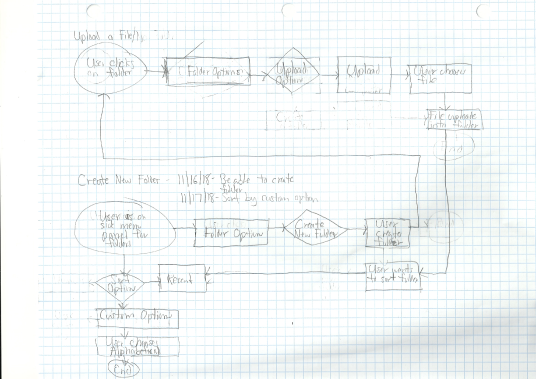 Upload a File
User clicks
on folder
Folder Options
Upload
Option
Upload
User chooses
file
File uploads
into folder
End
Create New Folter - 11/16/18 - Be able to create
folder.
11/17/18 - Sort by custom option
User
menu
folders
Folder Option
Create
New Folder
User
create
folder
User wants
to sort folder
Recent
Sort
Option
Custom Option
User chooses
Alphabetical
End